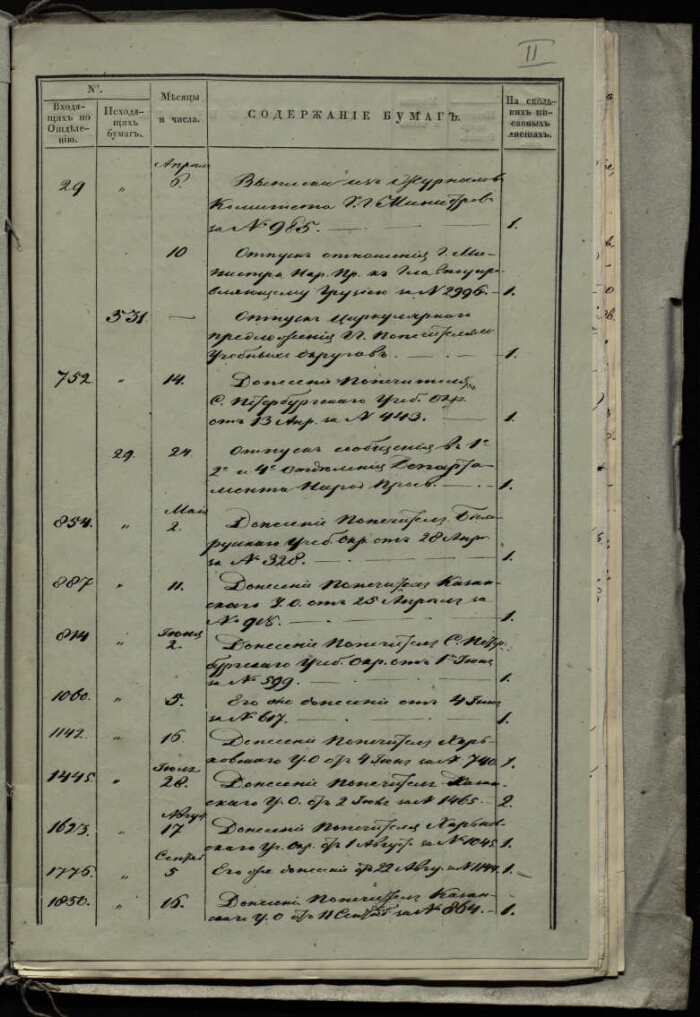 II
№.
Входя-
щихъ по
Отдѣле-
нію.
Исходя-
щихъ
бумагъ.
Мѣсяцы
и числа.
СОДЕРЖАНІЕ БУМАГЪ.
На сколь-
кихъ пи-
санныхъ
листахъ.
Апрѣля
29 „ 6 Выписка изъ Журналовъ
Комитета Г.Г. Министровъ
за № 985. — 1.
10 Отпускъ отношенія Г. Ми-
нистра Нар. Пр. къ Главноупра-
вляющему Грузіею за № 2996. — 1.
531 — Отпускъ Циркулярнаго
предложенія Г.г. Попечителямъ
Учебныхъ Округовъ. — 1.
752 „ 14. Донесеніе Попечителя
С. Петербургскаго Учеб. Окр.
отъ 13 Апр. за № 443. — 1.
29. 24. Отпускъ сообщенія въ 1е
2е и 4е Отдѣленія Департа-
мента Народ. Просв. — 1.
Май
854. „ 2. Донесеніе Попечителя Бѣло-
русскаго Учеб. Окр. отъ 28 Апр.
за № 328. — 1.
887 „ 11. Донесеніе Попечителя Казан-
скаго У. О. отъ 25 Апрѣля за
№ 918. — 1.
Іюнь
814 „ 2. Донесеніе Попечителя С. Петер-
бургскаго Учеб. Окр. отъ 1 Іюня
за № 599. — 1.
1060. „ 5. Его же донесеніе отъ 4 Іюня
за № 617. — 1.
1142. „ 16. Донесеніе Попечителя Харь-
ковскаго У. О отъ 4 Іюня за № 740. 1.
Іюль
1445. „ 28. Донесеніе Попечителя Казан-
скаго У. О. отъ 2 Іюля за № 1465. — 2.
Август
1623. „ 17 Донесеніе Попечителя Харьков-
скаго Уч. Окр. отъ 1 Августа за № 1045. 1.
Сентяб
1776. „ 5 Его же донесеніе отъ 22 Авгу. за № 1144. 1.
1850. „ 16. Донесеніе Попечителя Казан-
скаго У. О отъ 11 Сентяб за № 864. — 1.